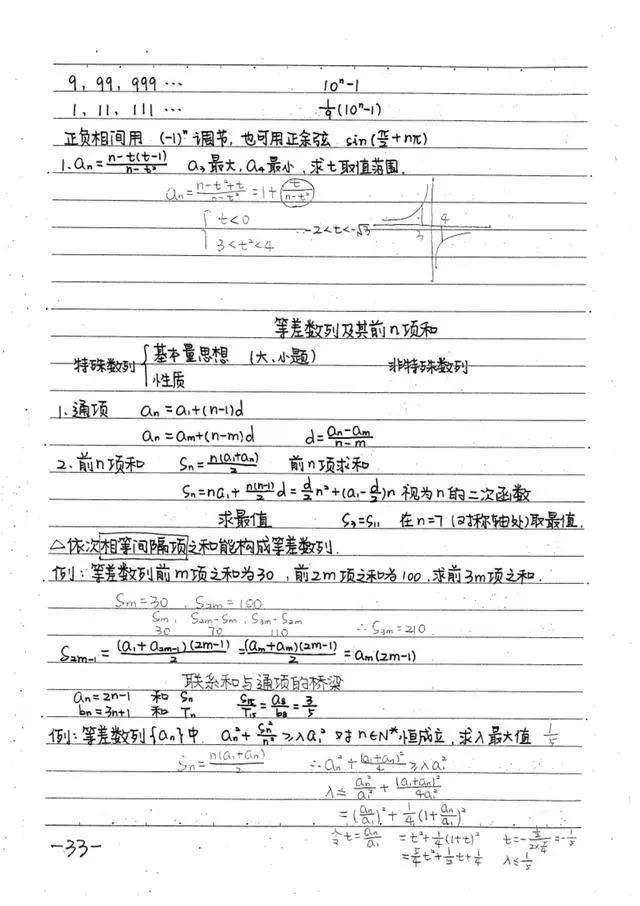 9, 99, 999 ⋯ 10ⁿ-1
1, 11, 111 ⋯ 1/9(10ⁿ-1)
正负相间用 (-1)ⁿ 调节, 也可用正余弦 sin(π/2+nπ)
1. aₙ = (n-t(t-1))/(n-t²) a₃最大, a₄最小, 求t取值范围.
aₙ = (n-t²+t)/(n-t²) = 1+ t/(n-t²)
{ t<0
3<t²<4 ∴ -2<t<-√3 3 4
等差数列及其前n项和
特殊数列 { 基本量思想 (大、小题) 非特殊数列
性质
1、通项 aₙ = a₁+(n-1)d
aₙ = aₘ+(n-m)d d = (aₙ-aₘ)/(n-m)
2、前n项和 Sₙ = n(a₁+aₙ)/2 前n项求和
Sₙ = na₁ + n(n-1)/2 d = d/2 n² + (a₁-d/2)n 视为n的二次函数
求最值 S₃=S₁₁ 在n=7(对称轴处)取最值.
△依次相等间隔项之和能构成等差数列.
例: 等差数列前m项之和为30, 前2m项之和为100, 求前3m项之和.
Sₘ=30 , S₂ₘ=100
Sₘ, S₂ₘ-Sₘ, S₃ₘ-S₂ₘ
30 70 110 ∴ S₃ₘ=210
S₂ₘ₋₁ = (a₁+a₂ₘ₋₁)(2m-1)/2 = (aₘ+aₘ)(2m-1)/2 = aₘ(2m-1)
联系和与通项的桥梁
aₙ=2n-1 和 Sₙ S₁₅/T₁₅ = a₈/b₈ = 3/5
bₙ=3n+1 和 Tₙ
例: 等差数列{aₙ}中. aₙ² + Sₙ²/n² ≥ λa₁² 对 n∈N*恒成立, 求λ最大值 1/5
Sₙ = n(a₁+aₙ)/2 ∴ aₙ² + (a₁+aₙ)²/4 ≥ λa₁²
λ ≤ aₙ²/a₁² + (a₁+aₙ)²/4a₁²
= (aₙ/a₁)² + 1/4(1+aₙ/a₁)²
令t=aₙ/a₁ = t²+1/4(1+t)² t=-(1/2)/(2×5/4)=-1/5
= 5/4t²+1/2t+1/4 λ≤1/5
-33-